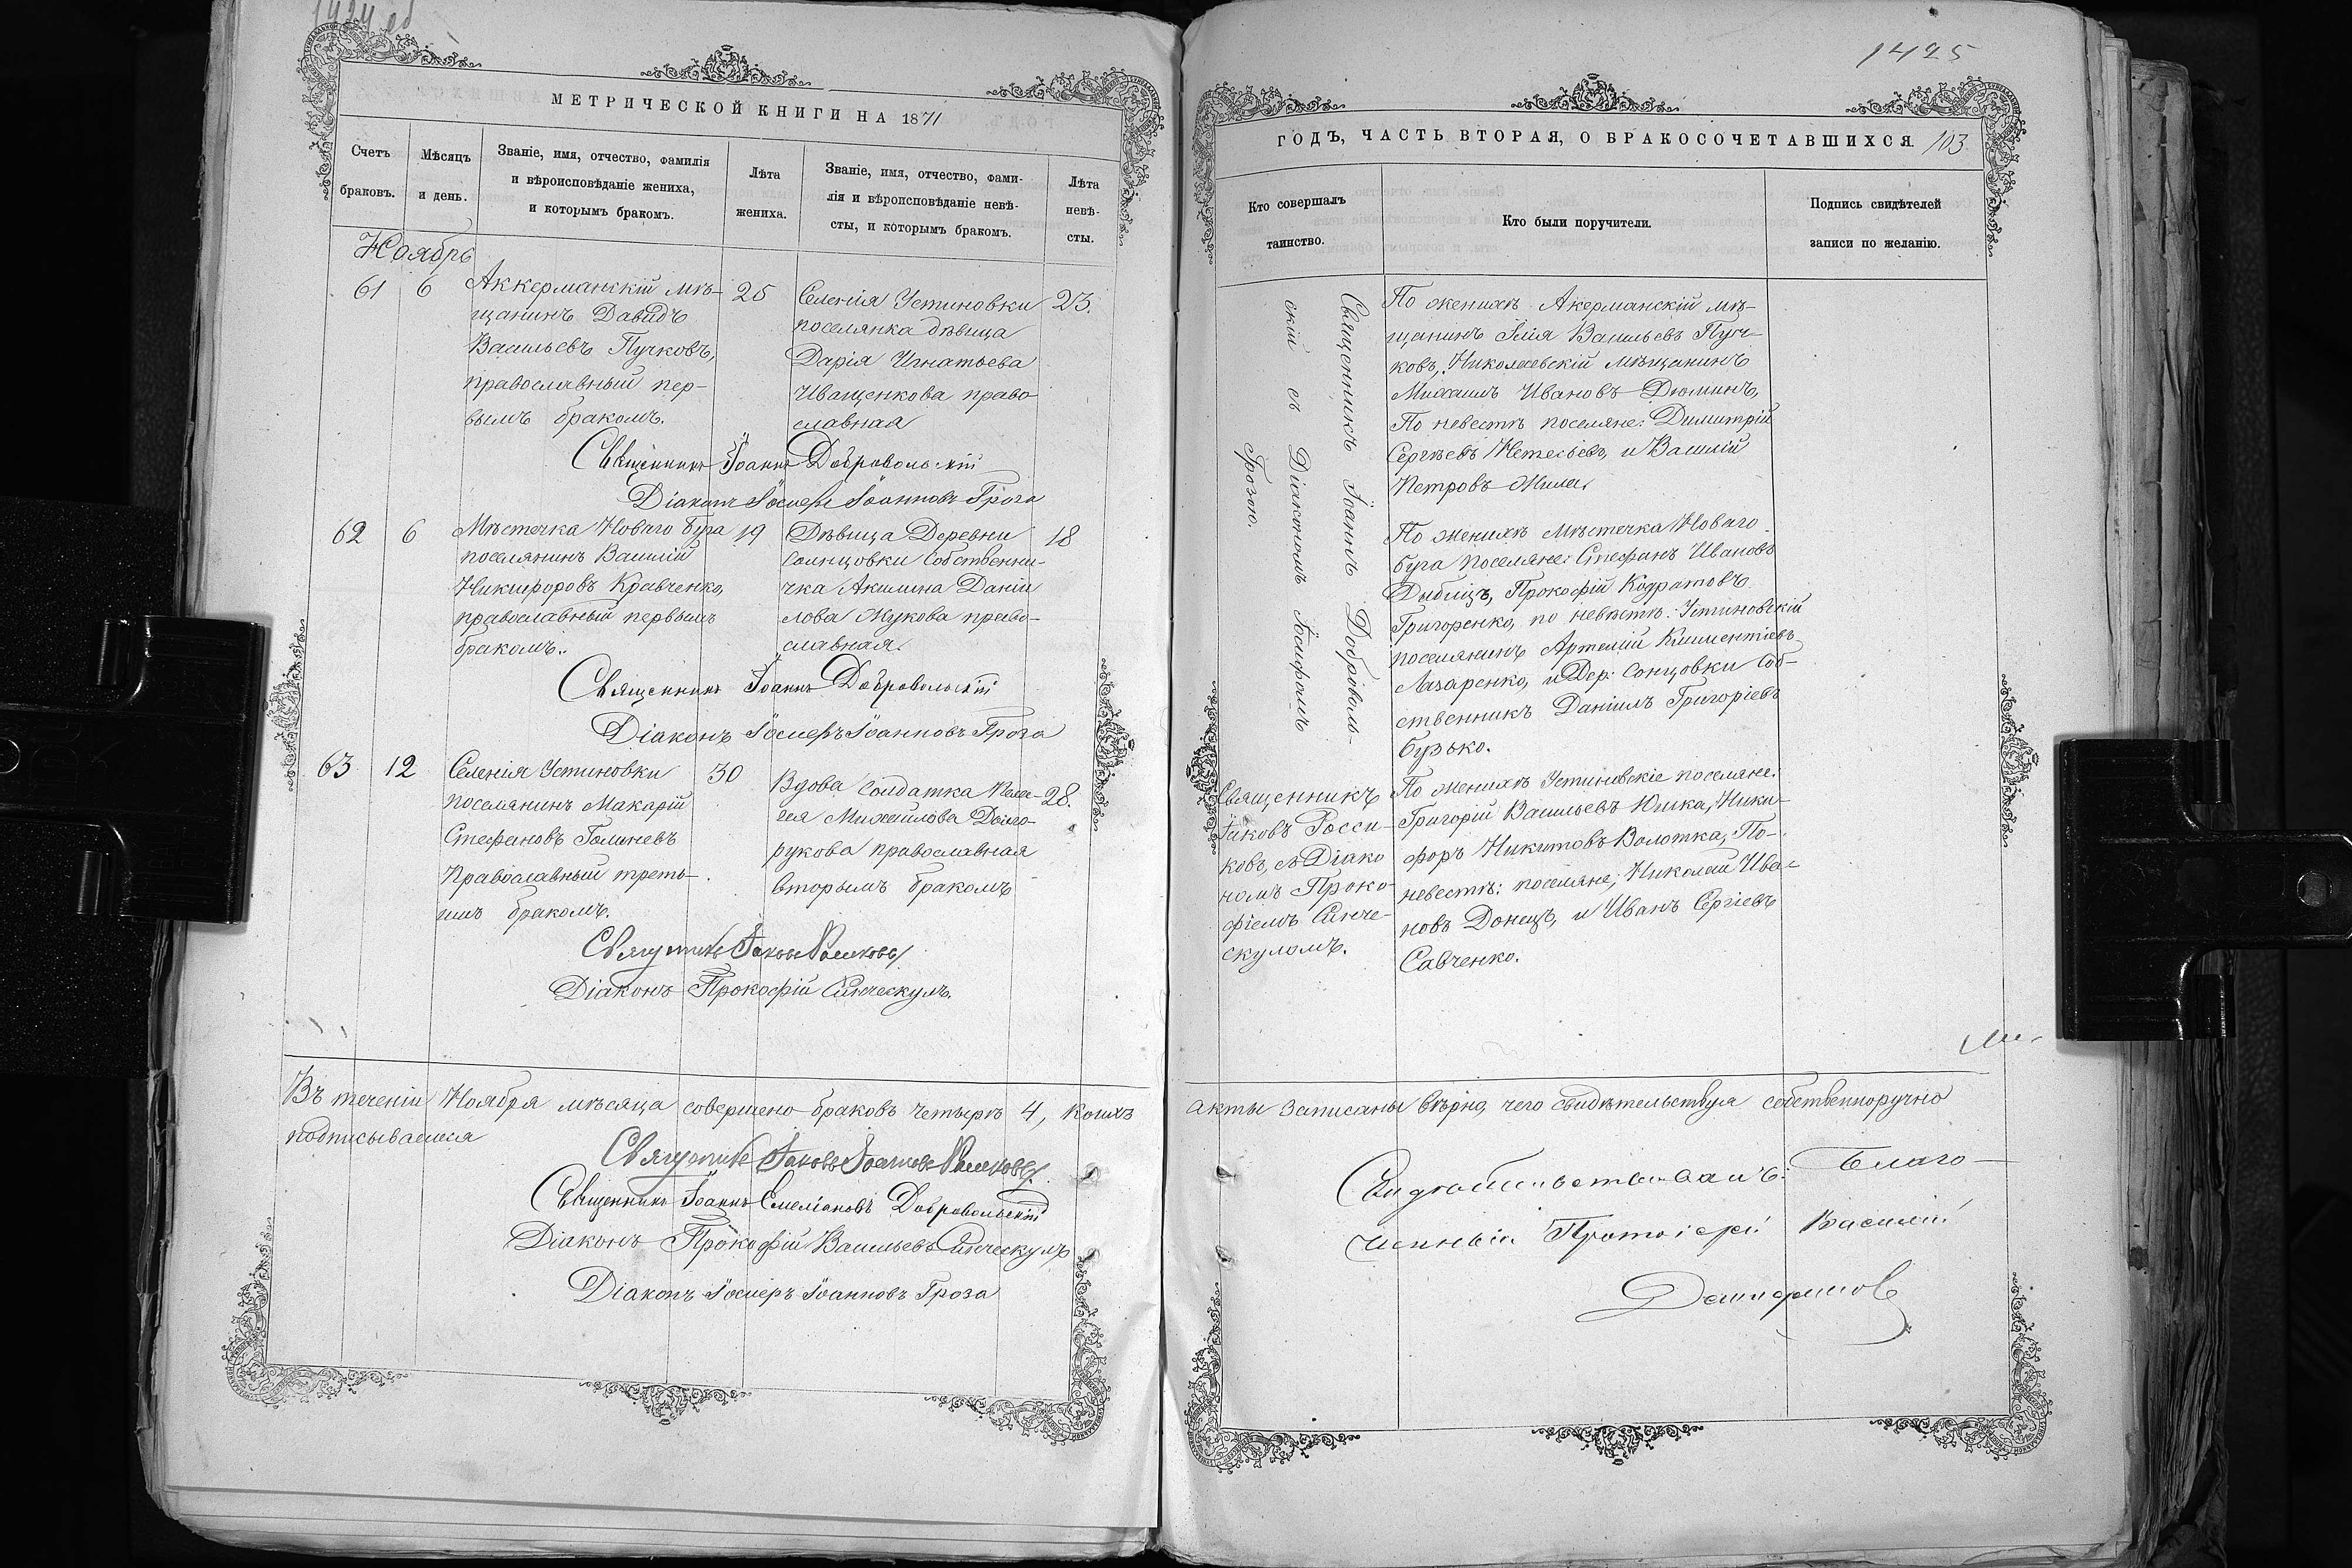 1424 об
МЕТРИЧЕСКОЙ КНИГИ НА 1871
Счетъ браковъ.
Мѣсяцъ и день.
Званіе, имя, отчество, фамилія
и вѣроисповѣданіе жениха,
и которымъ бракомъ.
Лѣта
жениха.
Званіе, имя, отчество, фами-
лія и вѣроисповѣданіе невѣ-
сты, и которымъ бракомъ.
Лѣта
невѣ-
сты.
Ноябрь
61
6
Аккерманскій мѣ-
щанинъ Давидъ
Васильевъ Пучковъ,
православный пер-
вымъ бракомъ.
25
Селенія Устиновки
поселянка дѣвица
Дарія Игнатьева
Иващенкова право
славная
23.
Священникъ Іоаннъ Добровольскій
Діаконъ Іосифъ Іоанновъ Гроза
62
6
Мѣстечка Новаго буга
поселянинъ Василій
Никифоровъ Кравченко,
православный первымъ
бракомъ.
19
Дѣвица Деревни
Солнцовки Собственни-
чка Акилина Даніи
лова Жукова право-
славная.
18
Священникъ Іоаннъ Добровольскій
Діаконъ Іосифъ Іоанновъ Гроза
63
12
Селенія Устиновки
поселянинъ Макарій
Стефановъ Голиневъ
Православный треть-
имъ бракомъ.
30
Вдова Солдатка Пела-
гея Михайлова Долго-
рукова православная
вторымъ бракомъ
28.
Священникъ Іаковъ
Діаконъ Прокофій Синческулъ.
Въ теченіи Ноября мѣсяца совершено браковъ четыре 4, коихъ
подписываемся
Священникъ Іаковъ Іоанновъ
Священникъ Іоаннъ Емеліановъ Добровольскій
Діаконъ Прокофій Васильевъ Синческулъ
Діаконъ Іосифъ Іоанновъ Гроза
1425
ГОДЪ, ЧАСТЬ ВТОРАЯ, О БРАКОСОЧЕТАВШИХСЯ. 103
Кто совершалъ
таинство.
Кто были поручители.
Подпись свидѣтелей
записи по желанію.
Священникъ Іоаннъ Доброволь-
скій съ Діакономъ Іосифомъ
Грозою.
По женихѣ Акерманскій мѣ-
щанинъ Илія Васильевъ Пуч-
ковъ, Николаевскій мѣщанинъ
Михаилъ Ивановъ Дюминъ,
По невестѣ поселяне: Димитрій
Сергѣевъ и Василій
Петровъ
По женихѣ Мѣстечка Новаго
буга поселяне: Стефанъ Ивановъ
Прокофій Кодратовъ
Григоренко, по невѣстѣ: Устиновскій
поселянинъ Артемій Климентіевъ
Лазаренко, и Дер: Сонцовки Соб-
ственникъ Даніилъ Григоріевъ
бузько.
Священникъ
Іаковъ Росси-
ковъ, съ Діако
номъ Проко-
фіемъ Синче-
скуломъ.
По женихѣ Устиновскіе поселяне:
Григорій Васильевъ Юшка, Ники-
форъ Никитовъ Волотка, По-
невестѣ: поселяне, Николай Ива-
новъ Донецъ, и Иванъ Сергіевъ
Савченко.
акты записаны вѣрно, чего свидѣтельствуя собственноручно
Свидѣтельствовалъ: Благо-
чинный Протоіерей Василій